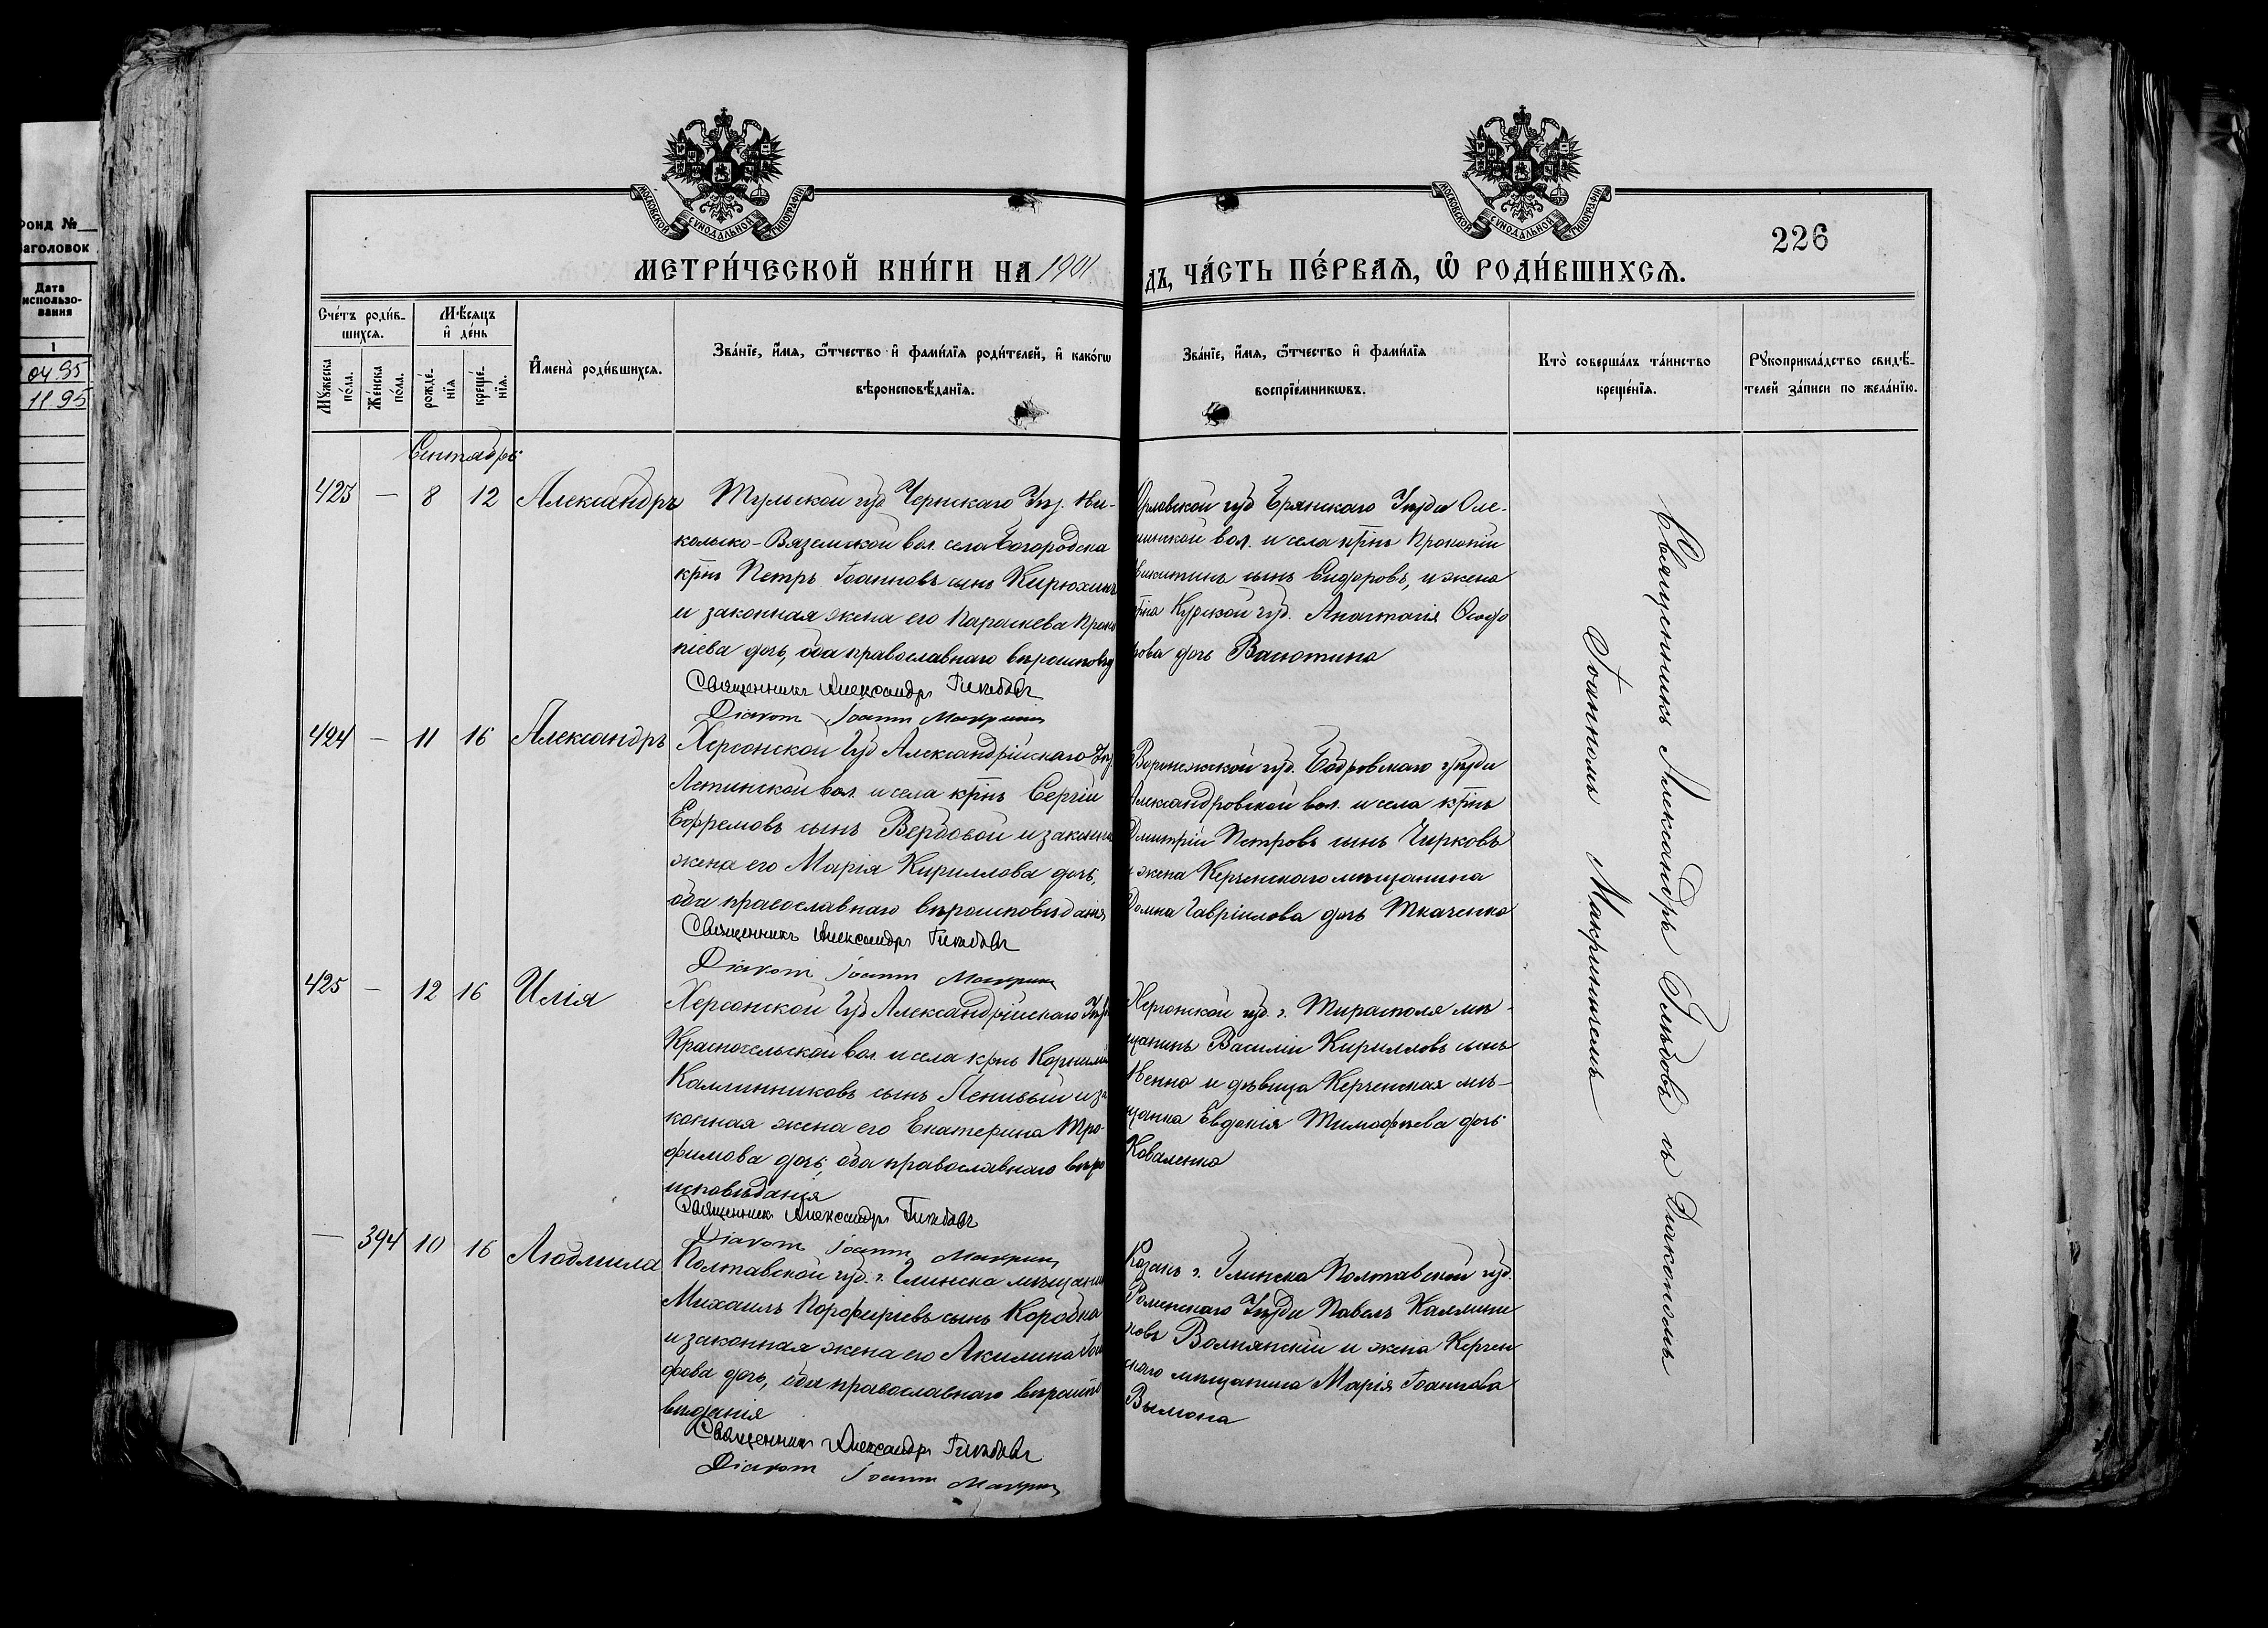 Фонд №
Заголовок
Дата
использо-
вания
1
04 95
11 95
МОСКОВСКОЙ СѴНОДАЛЬНОЙ ТИПОГРАФІИ
МОСКОВСКОЙ СѴНОДАЛЬНОЙ ТИПОГРАФІИ
226
МЕТРИ́ЧЕСКОЙ КНИ́ГИ НА 1901
ДЪ, ЧА́СТЬ ПЕ́РВАѦ, Ѽ РОДИ́ВШИХСѦ.
Сче́тъ роди́в-
шихсѧ.
Мѣ́сѧцъ
и҆ де́нь
Мꙋжеска
по́ла.
Же́нска
по́ла.
рожде́-
нїѧ
креще́-
нїѧ.
И҆мена̀ роди́вшихсѧ.
Зва́нїе, и҆́мѧ, ѻ҆́тчество и҆ фами́лїѧ роди́телей, и҆ како́гѡ
вѣроисповѣ́данїѧ.
Зва́нїе, и҆́мѧ, ѻ҆́тчество и҆ фами́лїѧ
воспрїе́мникѡвъ.
Кто̀ соверша́лъ та́инство
креще́нїѧ.
Рꙋкоприкла́дство свидѣ́-
телей за́писи по жела́нїю.
Сентябрь
423 — 8 12 Александръ
Тульской губ. Чернскаго Уѣз. Ни-
кольско-Вяземской вол. села Богородска
крнъ Петръ Іоанновъ сынъ Кирюхинъ
и законная жена его Параскева Проко
піева дочь, оба православнаго вѣроисповѣд
Священникъ Александръ
Діаконъ Іоаннъ Макрин
Орловской губ. Брянскаго Уѣзда
вол. и села крнъ Прокопій
Никитинъ сынъ Сидоровъ, и жена
Курской губ. Анастасія
рова дочь Васютина
424 — 11 16 Александръ
Херсонской Губ Александрійскаго Уѣз.
вол. и села крнъ Сергій
Ефремовъ сынъ Вербовой и законна
жена его Марія Кириллова дочь,
оба православнаго вѣроисповѣданія
Священникъ Александръ
Діаконъ Іоаннъ Макрин
Воронежской губ. Бобровскаго уѣзда
Александровской вол. и села крнъ
Дмитрій Петровъ сынъ Чирковъ
и жена Керченскаго мѣщанина
Домна Гавріилова дочь Ткаченко
425 — 12 16 Илія
Херсонской Губ Александрійскаго Уѣз
Красносельской вол. и села крнъ Корнилій
Каллинниковъ сынъ Ленивый и за
конная жена его Екатерина Тро
фимова дочь, оба православнаго вѣро
исповѣданія
Священникъ Александръ
Діаконъ Іоаннъ Макрин
Херсонской губ. г. Тирасполя мѣ-
щанинъ Василій Кирилловъ сынъ
и дѣвица Керченская мѣ-
щанка Евдокія Тимофѣева дочь
Коваленко
— 394 10 16 Людмила
Полтавской губ. г. Глинска мѣщани
Михаилъ Порфиріевъ сынъ Коробка
и законная жена его Акилина
фова дочь, оба православнаго вѣроиспо
вѣданія
Священникъ Александръ
Діаконъ Іоаннъ Макрин
Козакъ г. Глинска Полтавской губ.
Роменскаго Уѣзда Павелъ Каллини
ковъ Волнянскій и жена Керчен
скаго мѣщанина Марія Іоаннова
Священникъ Александръ съ Діакономъ
Іоанномъ